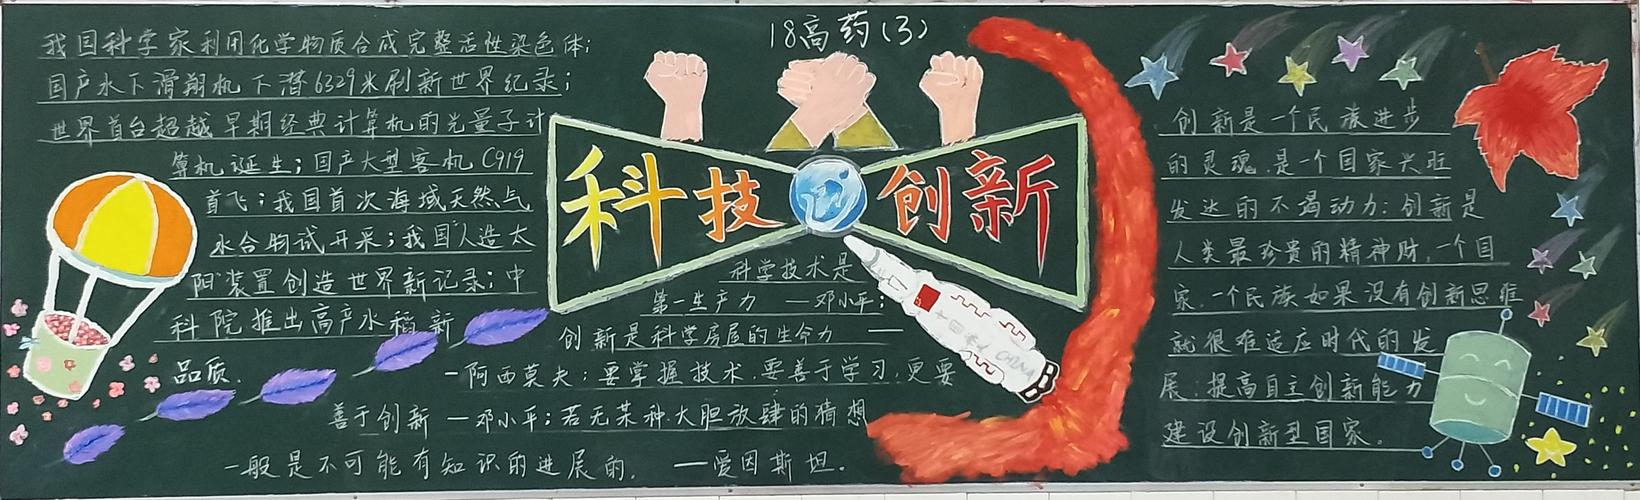 18高药(3)
我国科学家利用化学物质合成完整活性染色体;
国产水下滑翔机下潜6329米刷新世界纪录;
世界首台超越早期经典计算机的光量子计
算机诞生;国产大型客机C919
首飞;我国首次海域天然气
水合物试开采;我国人造太
阳装置创造世界新记录;中
科院推出高产水稻新
品质.
科技创新
科学技术是
第一生产力 —邓小平;
创新是科学房屋的生命力 —
—阿西莫夫;要掌握技术.要善于学习,更要
善于创新 —邓小平;若无某种.大胆放肆的猜想
一般是不可能有知识的进展的. —爱因斯坦.
中国 CHINA
创新是一个民族进步
的灵魂.是一个国家兴旺
发达的不竭动力;创新是
人类最珍贵的精神财.一个国
家.一个民族如果没有创新思维
就很难适应时代的发
展;提高自主创新能力
建设创新型国家.